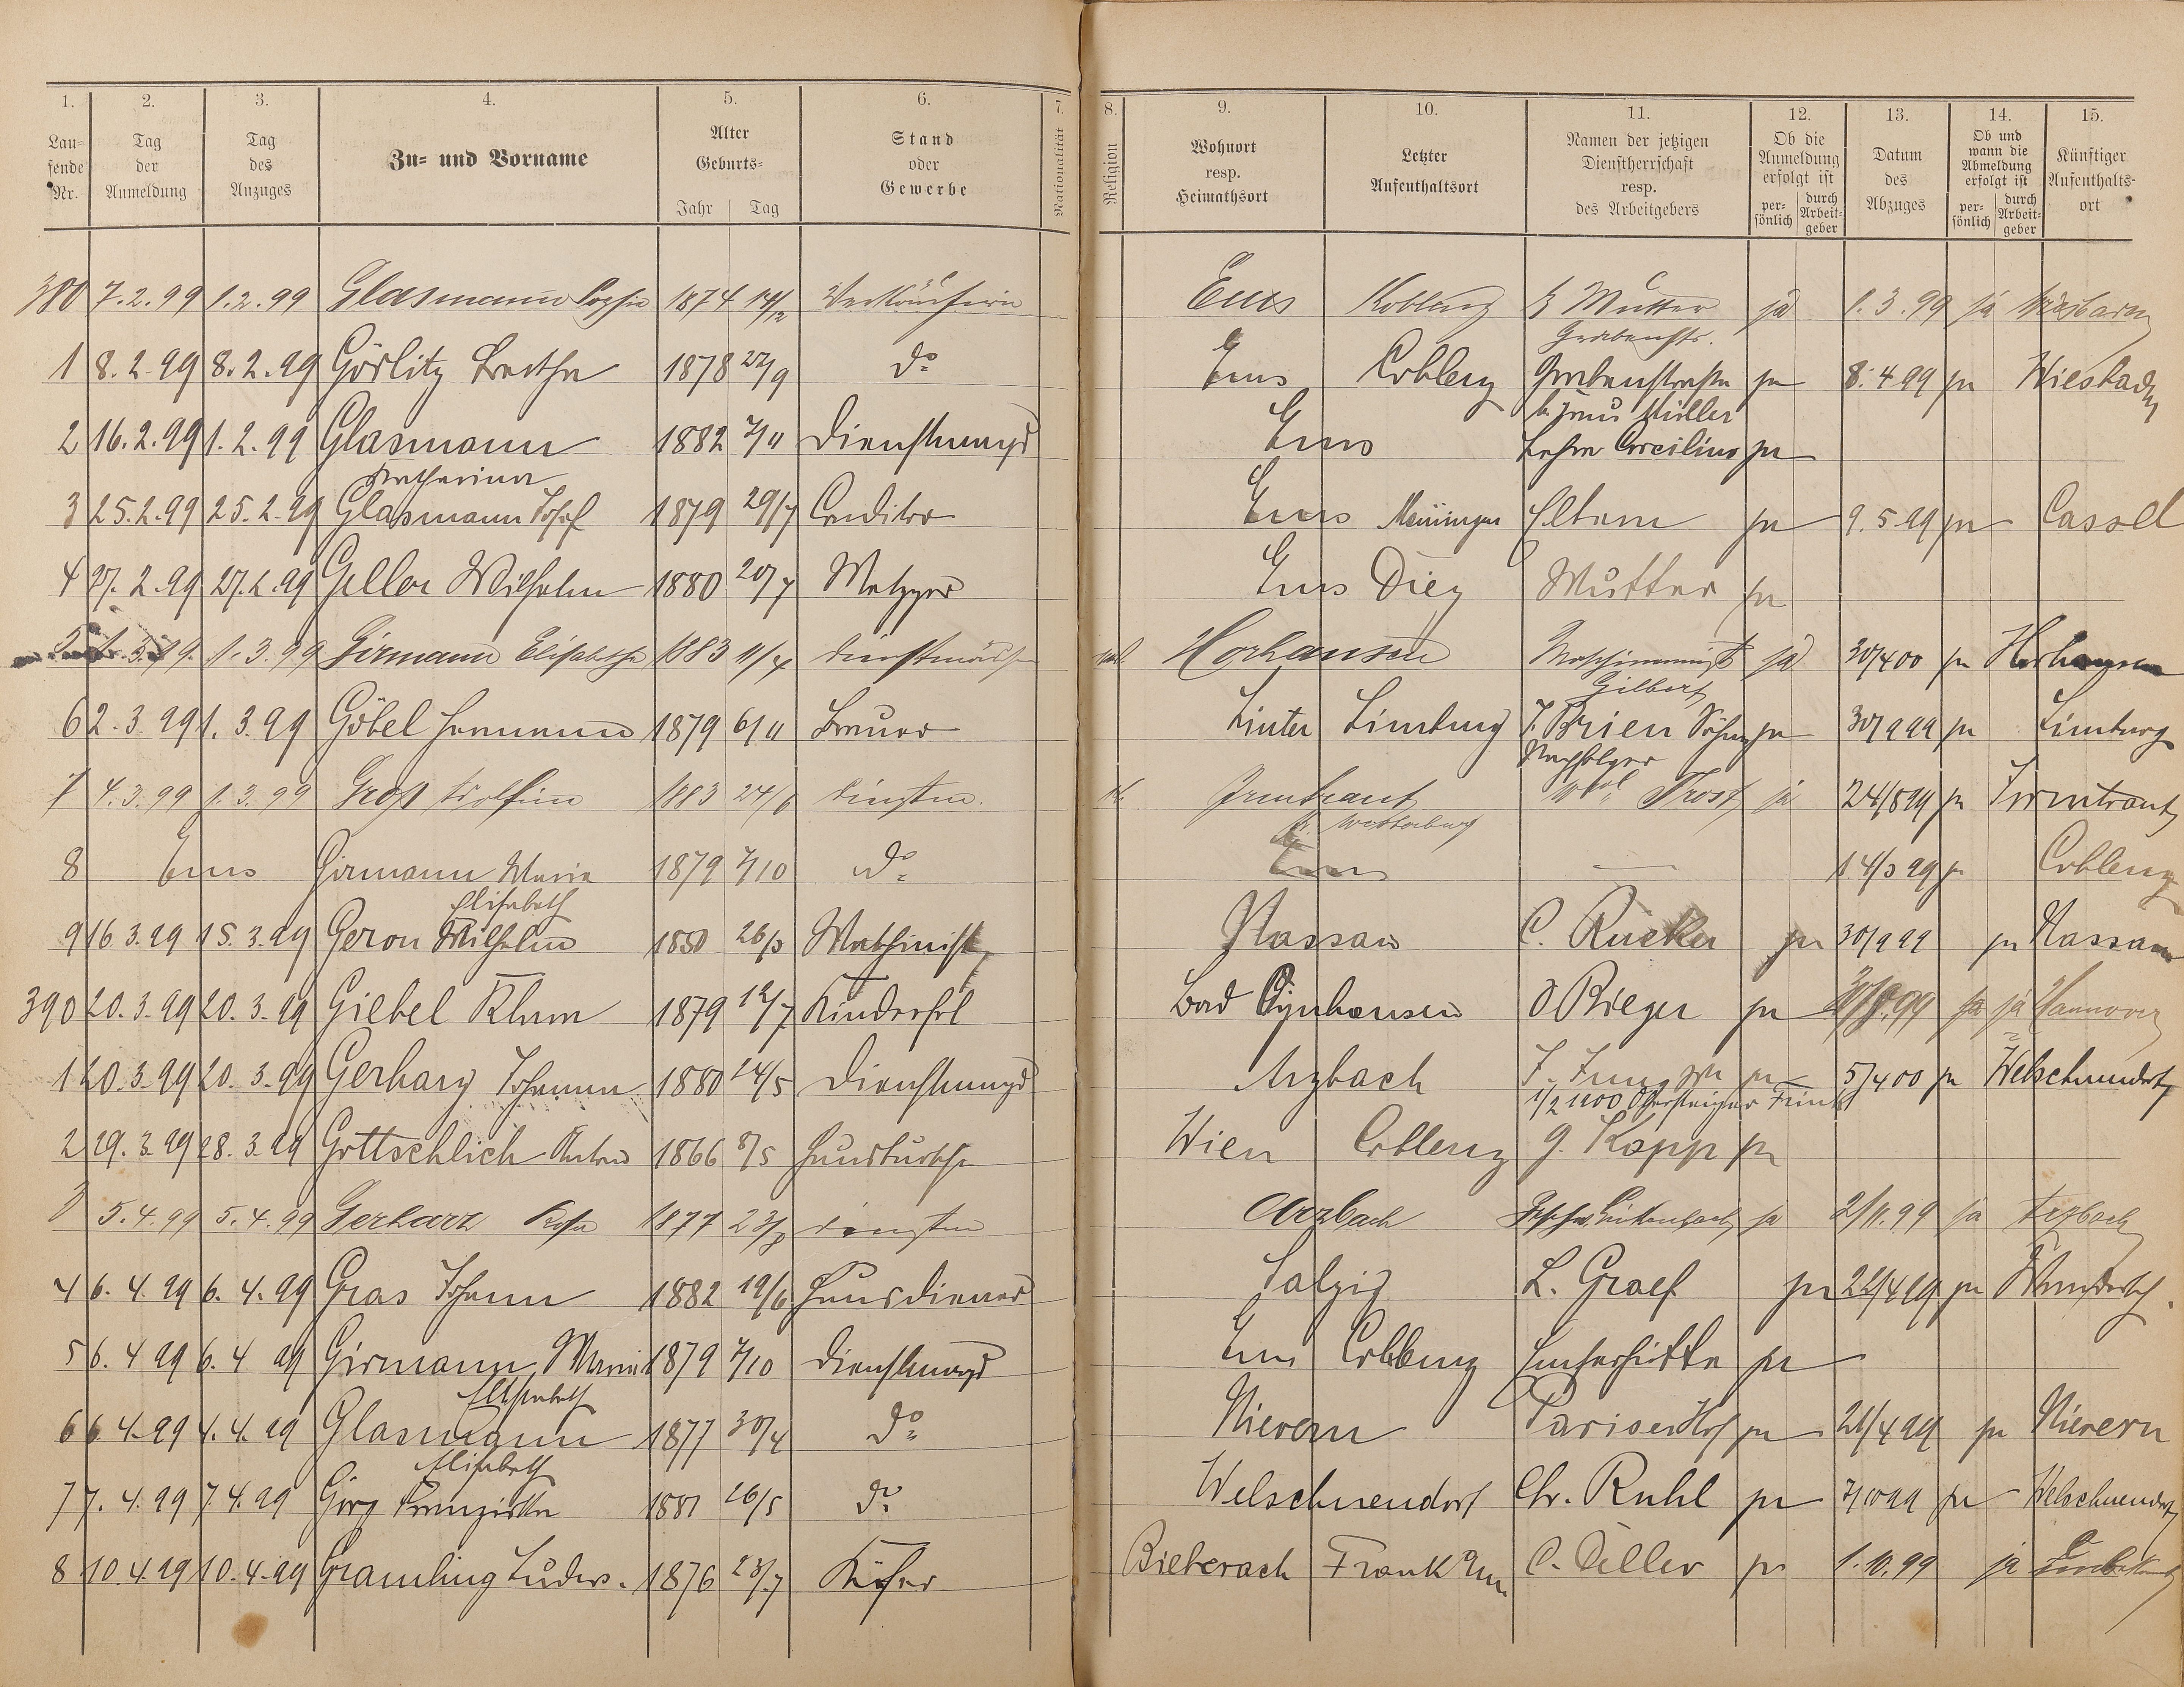 1. 2. 3. 4. 5. 6. 7. 8. 9. 10. 11. 12. 13. 14. 15.
Lau-
fende
Nr.
Tag
der
Anmeldung
Tag
des
Anzuges
Zu- und Vorname
Alter
Geburts-
Jahr Tag
Stand
oder
Gewerbe
Nationalität
Religion
Wohnort
resp.
Heimathsort
Letzter
Aufenthaltsort
Namen der jetzigen
Dienstherrschaft
resp.
des Arbeitgebers
Ob die
Anmeldung
erfolgt ist
per-
sönlich
durch
Arbeit-
geber
Datum
des
Abzuges
Ob und
wann die
Abmeldung
erfolgt ist
per-
sönlich
durch
Arbeit-
geber
Künftiger
Aufenthalts-
ort
380 7.2.99 1.2.99 Glasmann Sophie 1874 14/12 Verkäuferin Ems Koblenz b Mutter ja 1.3.99 ja Wiesbaden
Grabenstr.
1 8.2.99 8.2.99 Görlitz Bertha 1878 27/9 do Ems Coblenz Grabenstraße ja 8.4 99 ja Wiesbaden
b. Frau Müller
2 16.2.99 1.2.99 Glasmann 1882 7/11 Dienstmagd Ems ja
Katharina
3 25.2.99 25.2.99 Glasmann Josef 1879 29/7 Conditor Ems Meiningen Eltern ja 9.5 99 ja Cassel
4 27.2.99 27.2.99 Geller Wilhelm 1880 20/7 Metzger Ems Diez Mutter ja
1.3.99 Girmann Elisabethe 1883 11/4 Horhausen ja 30/4 00 ja Horhausen
Gilbert
6 2.3.99 1.3.99 Göbel Hermann 1879 6/11 Brauer Linter Limburg J. Brien Söhne ja 30/9 99 ja Limburg
Nachfolger
7 4.3.99 1.3.99 Groß 1883 24/6 Dienstm. Irmtraut Trost ja 24/8 99 ja Irmtraut
Westerburg
8 Ems Girmann Maria 1879 7/10 do Ems — 14/3 99 ja Coblenz
Elisabeth
9 16.3.99 15.3.99 Geron Wilhelm 1850 26/3 Maschinist Nassau C. Rücker ja 30/9 99 ja Nassau
390 20.3.99 20.3.99 Giebel Klara 1879 12/7 Kinderfrl Bad Oynhausen O Rieger ja ja ja Hannover
1 20.3.99 20.3.99 Gerharz Johann 1880 14/5 Dienstmagd Arzbach ja 5/4 00 ja Welschneudorf
1/2 1900 Obersteiger
2 29.3.99 28.3.99 Gottschlich Anton 1866 8/5 Hausbursche Wien Coblenz G. Kopp ja
3 5.4.99 5.4.99 Gerharz Rosa 1877 23/8 Arzbach ja 2/11.99 ja Arzbach
4 6.4.99 6.4.99 Gras Johann 1882 19/6 Hausdiener Salzig L. Graef ja 22/4 99 ja
5 6.4 99 6.4 99 Girmann Maria 1879 7/10 Dienstmagd Ems Coblenz Emserhütte ja
Elisabeth
6 6.4.99 4.4.99 Glasmann 1877 30/4 do Nievern Pariser Hof ja 21/4 99 ja Nievern
Elisabeth
7 7.4.99 7.4.99 Görg Franziska 1881 16/5 do Welschneudorf Chr. Ruhl ja 7/10 99 ja Welschneudorf
8 10.4.99 10.4.99 Gramling Ludw. 1876 23/7 Küfer Bieberach Frank a/m ja 1.10.99 ja